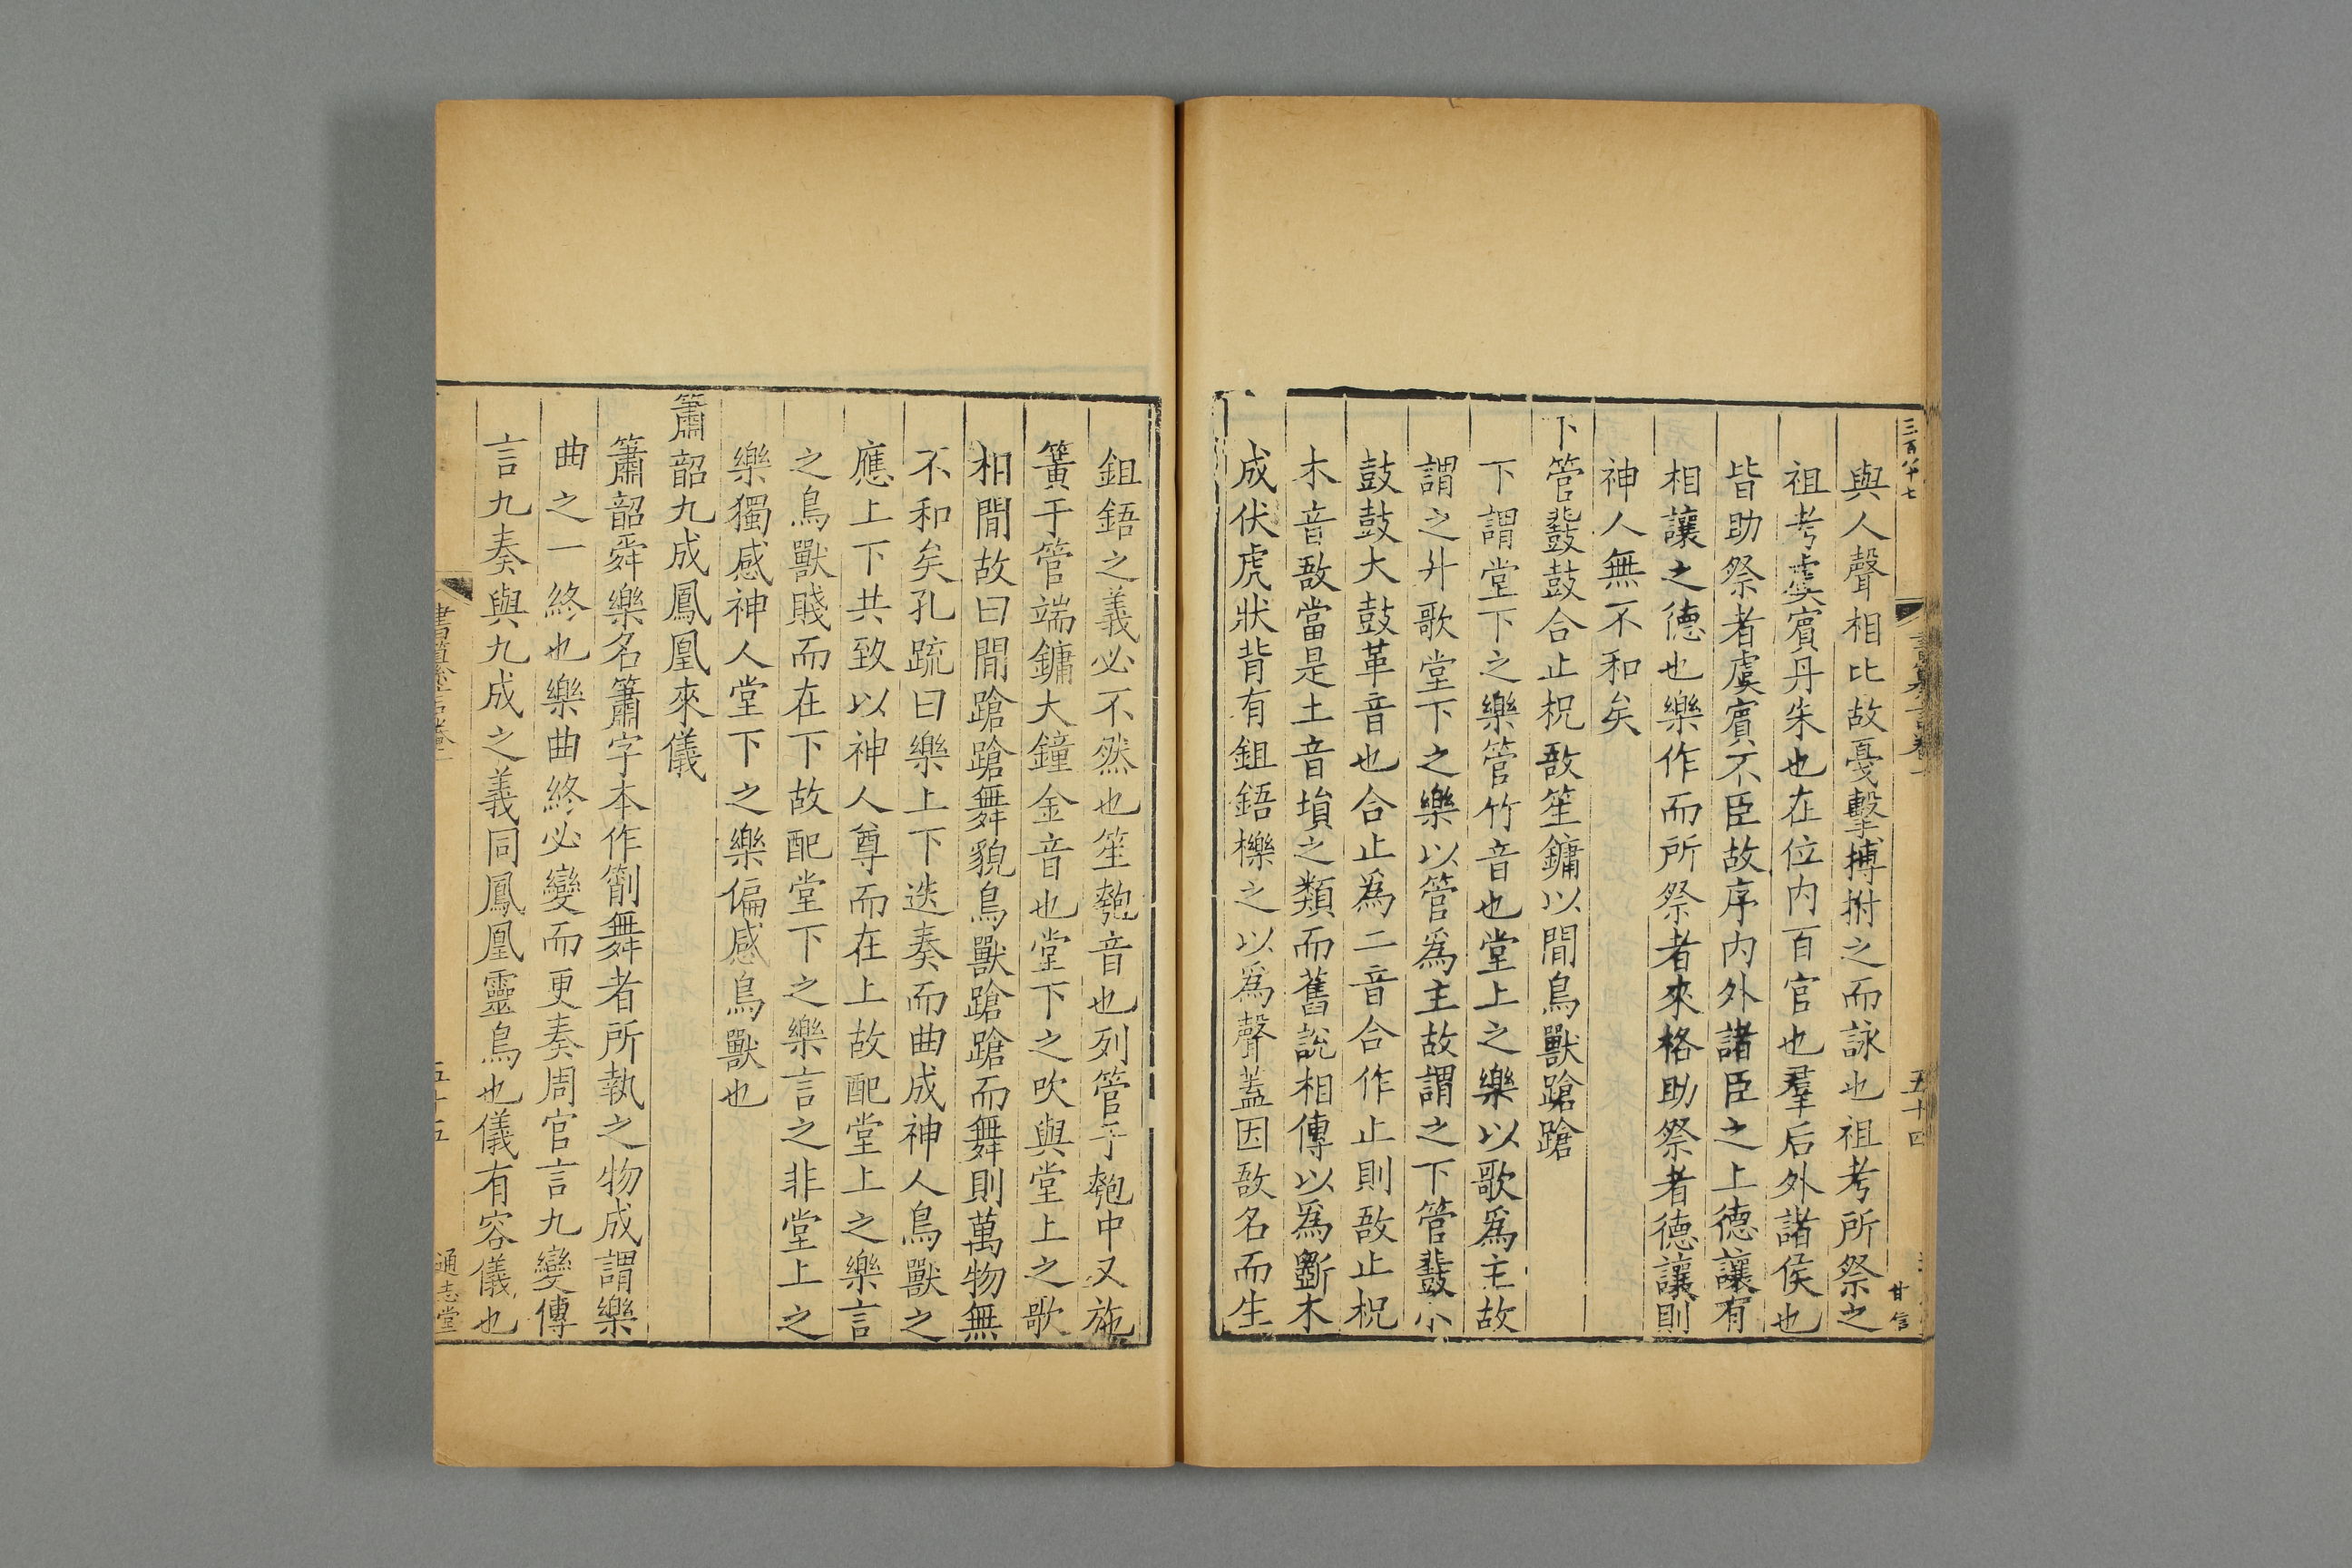 三百八十七
五十四
甘信
與人聲相比故戞擊搏拊之而詠也祖考所祭之
祖考虞賓丹朱也在位内百官也羣后外諸侯也
皆助祭者虞賓不臣故序内外諸臣之上德讓有
相讓之德也樂作而所祭者來格助祭者德讓則
神人無不和矣
下管鼗鼓合止柷敔笙鏞以間鳥獸蹌蹌
下謂堂下之樂管竹音也堂上之樂以歌爲主故
謂之升歌堂下之樂以管爲主故謂之下管鼗小
鼓鼓大鼓革音也合止爲二音合作止則敔止柷
木音敔當是土音塤之類而舊說相傳以爲斲木
成伏虎狀背有鉏鋙櫟之以爲聲蓋因敔名而生
鉏鋙之義必不然也笙匏音也列管于匏中又施
簧于管端鏞大鐘金音也堂下之吹與堂上之歌
相間故曰間蹌蹌舞貌鳥獸蹌蹌而舞則萬物無
不和矣孔疏曰樂上下迭奏而曲成神人鳥獸之
應上下共致以神人尊而在上故配堂上之樂言
之鳥獸賤而在下故配堂下之樂言之非堂上之
樂獨感神人堂下之樂偏感鳥獸也
簫韶九成鳳凰來儀
簫韶舜樂名簫字本作箾舞者所執之物成謂樂
曲之一終也樂曲終必變而更奏周官言九變傳
言九奏與九成之義同鳳凰靈鳥也儀有容儀也
五十五
通志堂